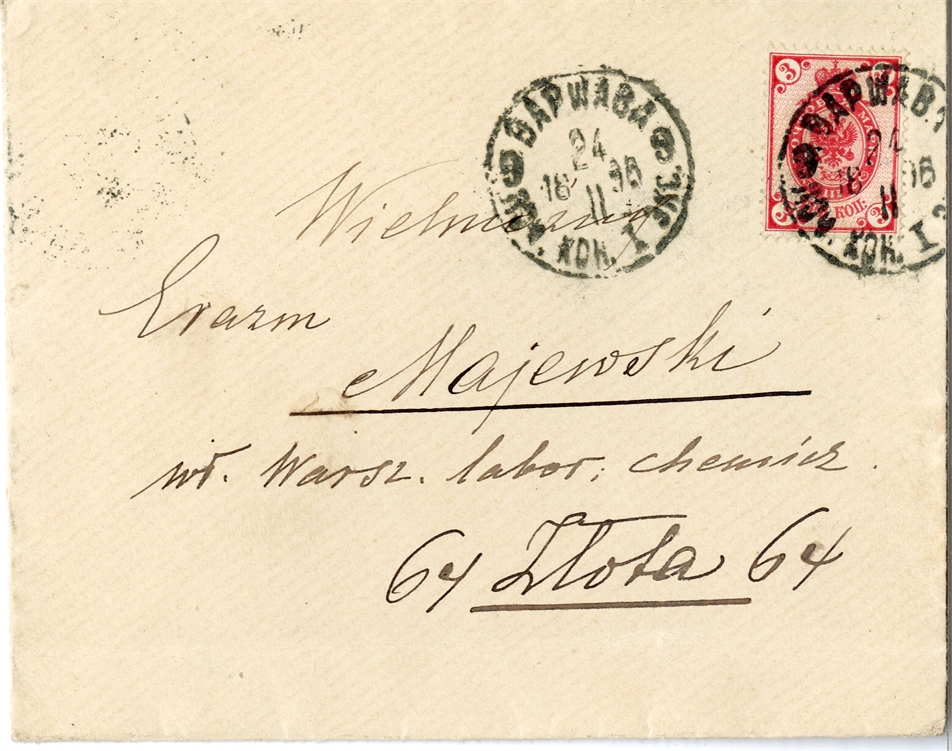 ВАРШАВА
24
18 96
11
КОН. I ЭКС.
3
3 КОП: 3
ВАРШАВА
24
18 96
11
КОН. I
Wielmożny
Erazm
Majewski
wł. Warsz. labor. chemicz.
64 Złota 64